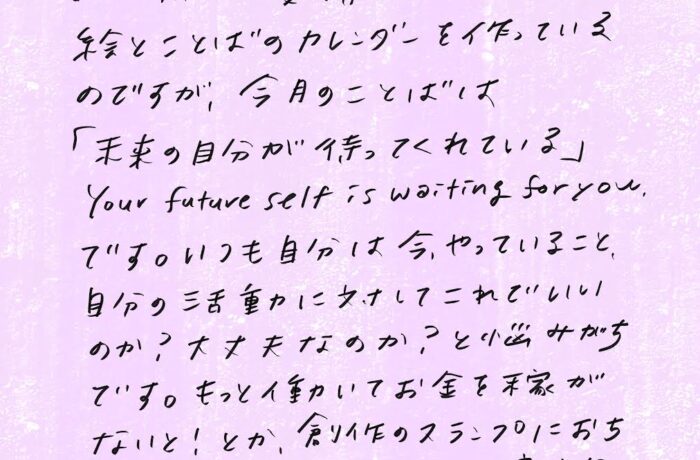 絵とことばのカレンダーを作っている
のですが、今月のことばは
「未来の自分が待ってくれている」
Your future self is waiting for you.
です。いつも自分は今、やっていること、
自分の活動に対してこれでいい
のか?大丈夫なのか?と悩みがち
です。もっと働いてお金を稼が
ないと!とか、創作のスランプにおち